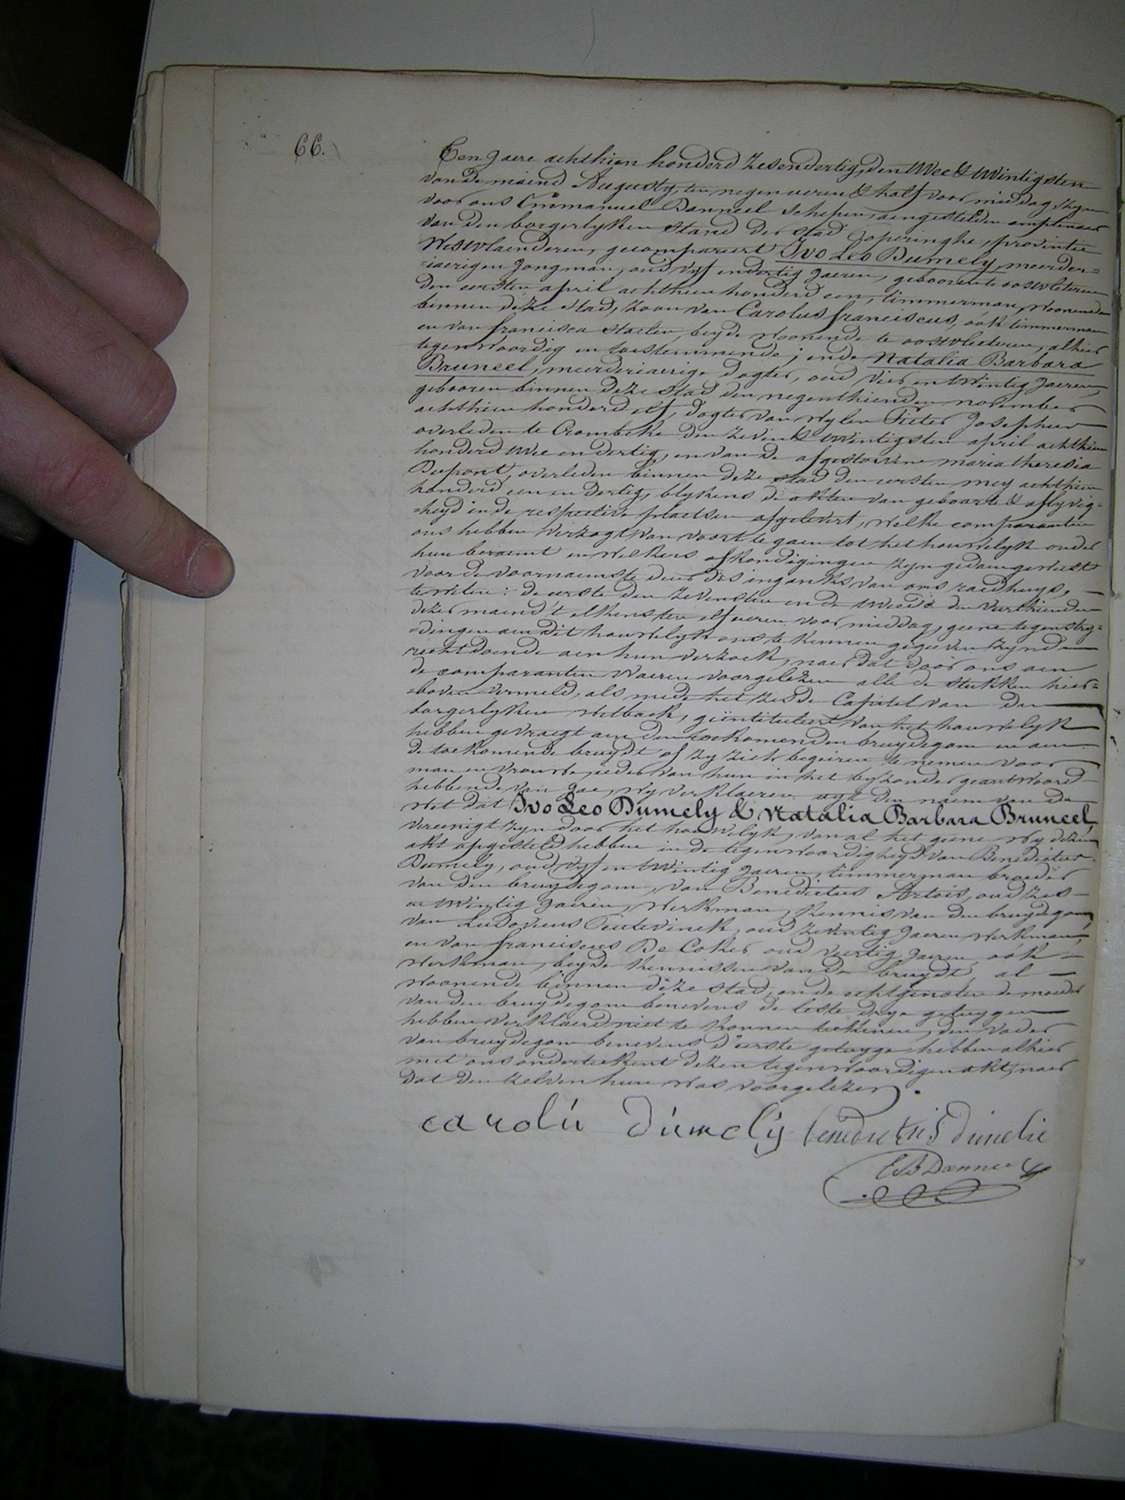 66.
Een Jaere achthien honderd zesendertig, den twee & twintigsten
van de maend Augusty, ten negen ueren & half voor middag,
voor ons Emmanuel Danneel schepen, aengestelden amptenaer
van den borgerlyken stand der stad Poperinghe, provintie
Westvlaenderen, gecompareert Ivo Leo Dumely, meerder=
=iaerigen Jongman, oud vyf en dertig Jaeren, geboren te oostvleteren
den eersten april achthien honderd een, timmerman, woonende
binnen deze stad, zoon van Carolus franciscus, ook timmerman
en van francisca Staelen, beyde woonende te oostvleteren, alhier
tegenwoordig en toestemmende; ende Natalia Barbara
Bruneel, meerderiaerige dogter, oud vier en twintig Jaeren,
gebooren binnen deze stad den negenthienden november
achthien honderd elf, dogter van wylen Pieter Josephus
overleden te Crombeke den zeven & twintigsten april achthien
honderd twee en dertig, en van de afgestorvene maria theresia
Dupont, overleden binnen deze stad den eersten mey achthien
honderd een en dertig, blykens de akten van geboorte & aflyvig=
=heyd in de respective plaetsen afgelevert, welke comparanten
ons hebben verzogt van voort te gaen tot het houwelyk onder
hun beraemt en welkers afkondigingen zyn gedaen geweest
voor de voornaemste deur des ingangs van ons raedhuys, —
te weten: de eerste den zevensten en de tweede den veerthienden
dezer maend 't elkens ten elf ueren voor middag, geene tegenstry=
=dingen aen dit houwelyk ons te kennen gegeven zynde
regt doende aen hun verzoek, naer dat door ons aen
de comparanten waeren voorgelezen alle de stukken hier=
=boven vermeld, als mede het zesde Capitel van den
borgerlyken wetboek, geïntituleert van het houwelyk
hebben gevraegt aen den toekomenden bruydegom en aen
de toekomende bruydt of zy zich begeeren te nemen voor
man en vrouw, ieder van hun in het byzonder geantwoord
hebbende van Jae, wy verklaeren uyt den naem van de
wet dat Ivo Leo Dumely & Natalia Barbara Bruneel,
vereenigt zyn door het houwelyk, van al het geene wy dezen
akt opgesteld hebben in de tegenwoordigheyd van Benedictus
Dumely, oud vyf en twintig Jaeren, timmerman broeder
van den bruydegom, van Benedictus Artois, oud zes—
en twintig Jaeren, werkman, kennis van den bruydegom,
van Ludovicus oud zeventig Jaeren, werkman,
en van franciscus De Coker oud veertig Jaeren, ook —
werkman, beyde kennissen van de bruydt, al —
woonende binnen deze stad, ende echtgenoten de moeder
van den bruydegom benevens de leste drye getuygen
hebben verklaerd niet te konnen teekenen, den vader
van bruydegom benevens d'eerste getuyge hebben alhier
met ons onderteekent dezen tegenwoordigen akt, naer
dat den zelven hun was voorgelezen.
carolu dumely benedictus dumelie
EB Danneel